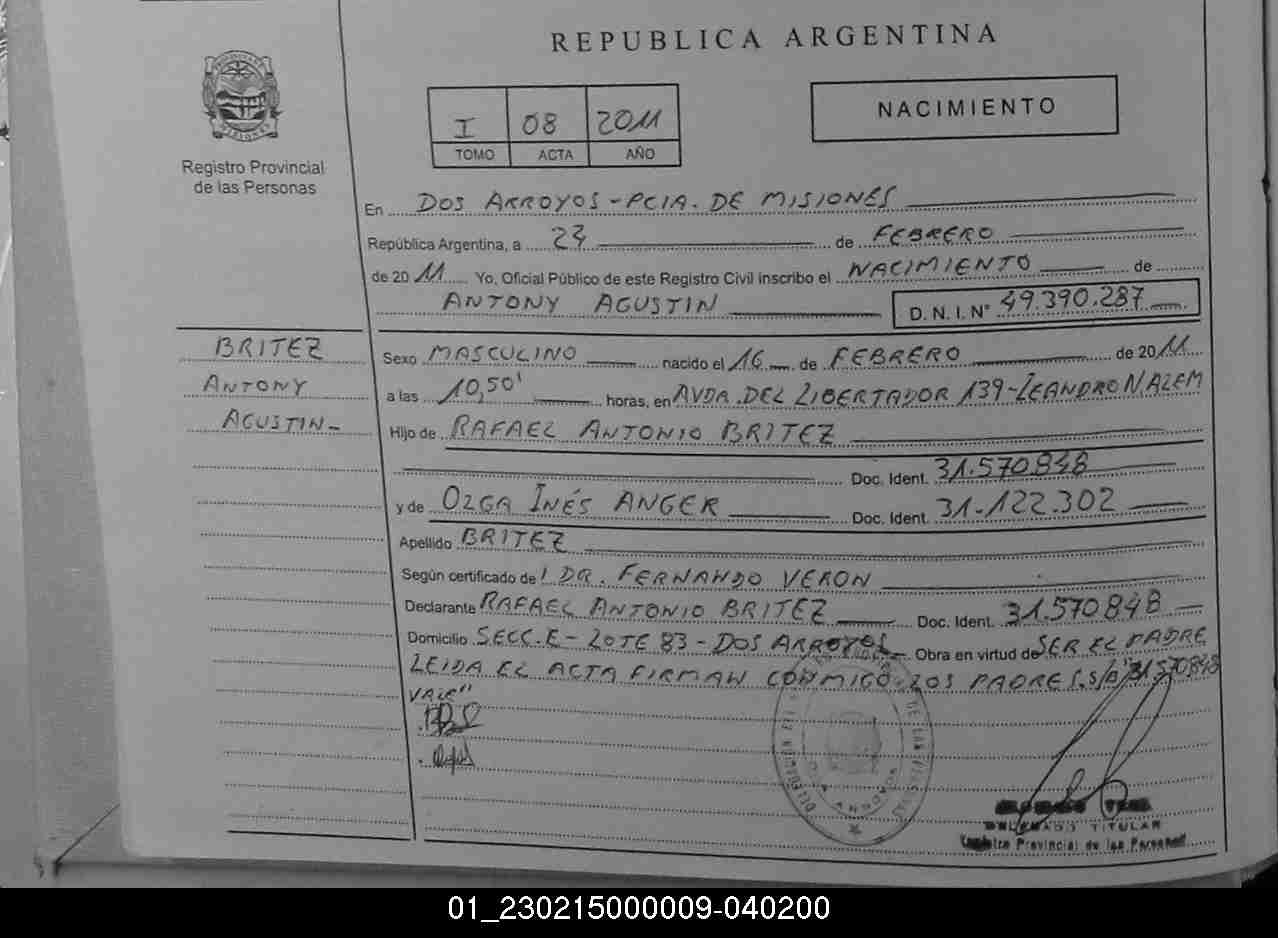 REPUBLICA ARGENTINA
PROVINCIA DE MISIONES
Registro Provincial
de las Personas
I 08 2011
TOMO ACTA AÑO
NACIMIENTO
En DOS ARROYOS - PCIA. DE MISIONES
República Argentina, a 23 de FEBRERO
de 2011 Yo, Oficial Público de este Registro Civil inscribo el NACIMIENTO de
ANTONY AGUSTIN D. N. I. N° 49.390.287
BRITEZ
ANTONY
AGUSTIN-
Sexo MASCULINO nacido el 16 de FEBRERO de 2011
a las 10,50' horas, en AVDA. DEL LIBERTADOR 139-LEANDRO N. ALEM
Hijo de RAFAEL ANTONIO BRITEZ
Doc. Ident. 31.570.848
y de OLGA INÉS ANGER Doc. Ident. 31.122.302
Apellido BRITEZ
Según certificado de DR. FERNANDO VERON
Declarante RAFAEL ANTONIO BRITEZ Doc. Ident. 31.570848
Domicilio SECC. E - LOTE 83 - DOS ARROYOS Obra en virtud de SER EL PADRE
LEIDA EL ACTA FIRMAN CONMIGO LOS PADRES. S/B "31570848
VALE"
DOS ARROYOS
DELEGADO TITULAR
Registro Provincial de las Personas
01_230215000009-040200